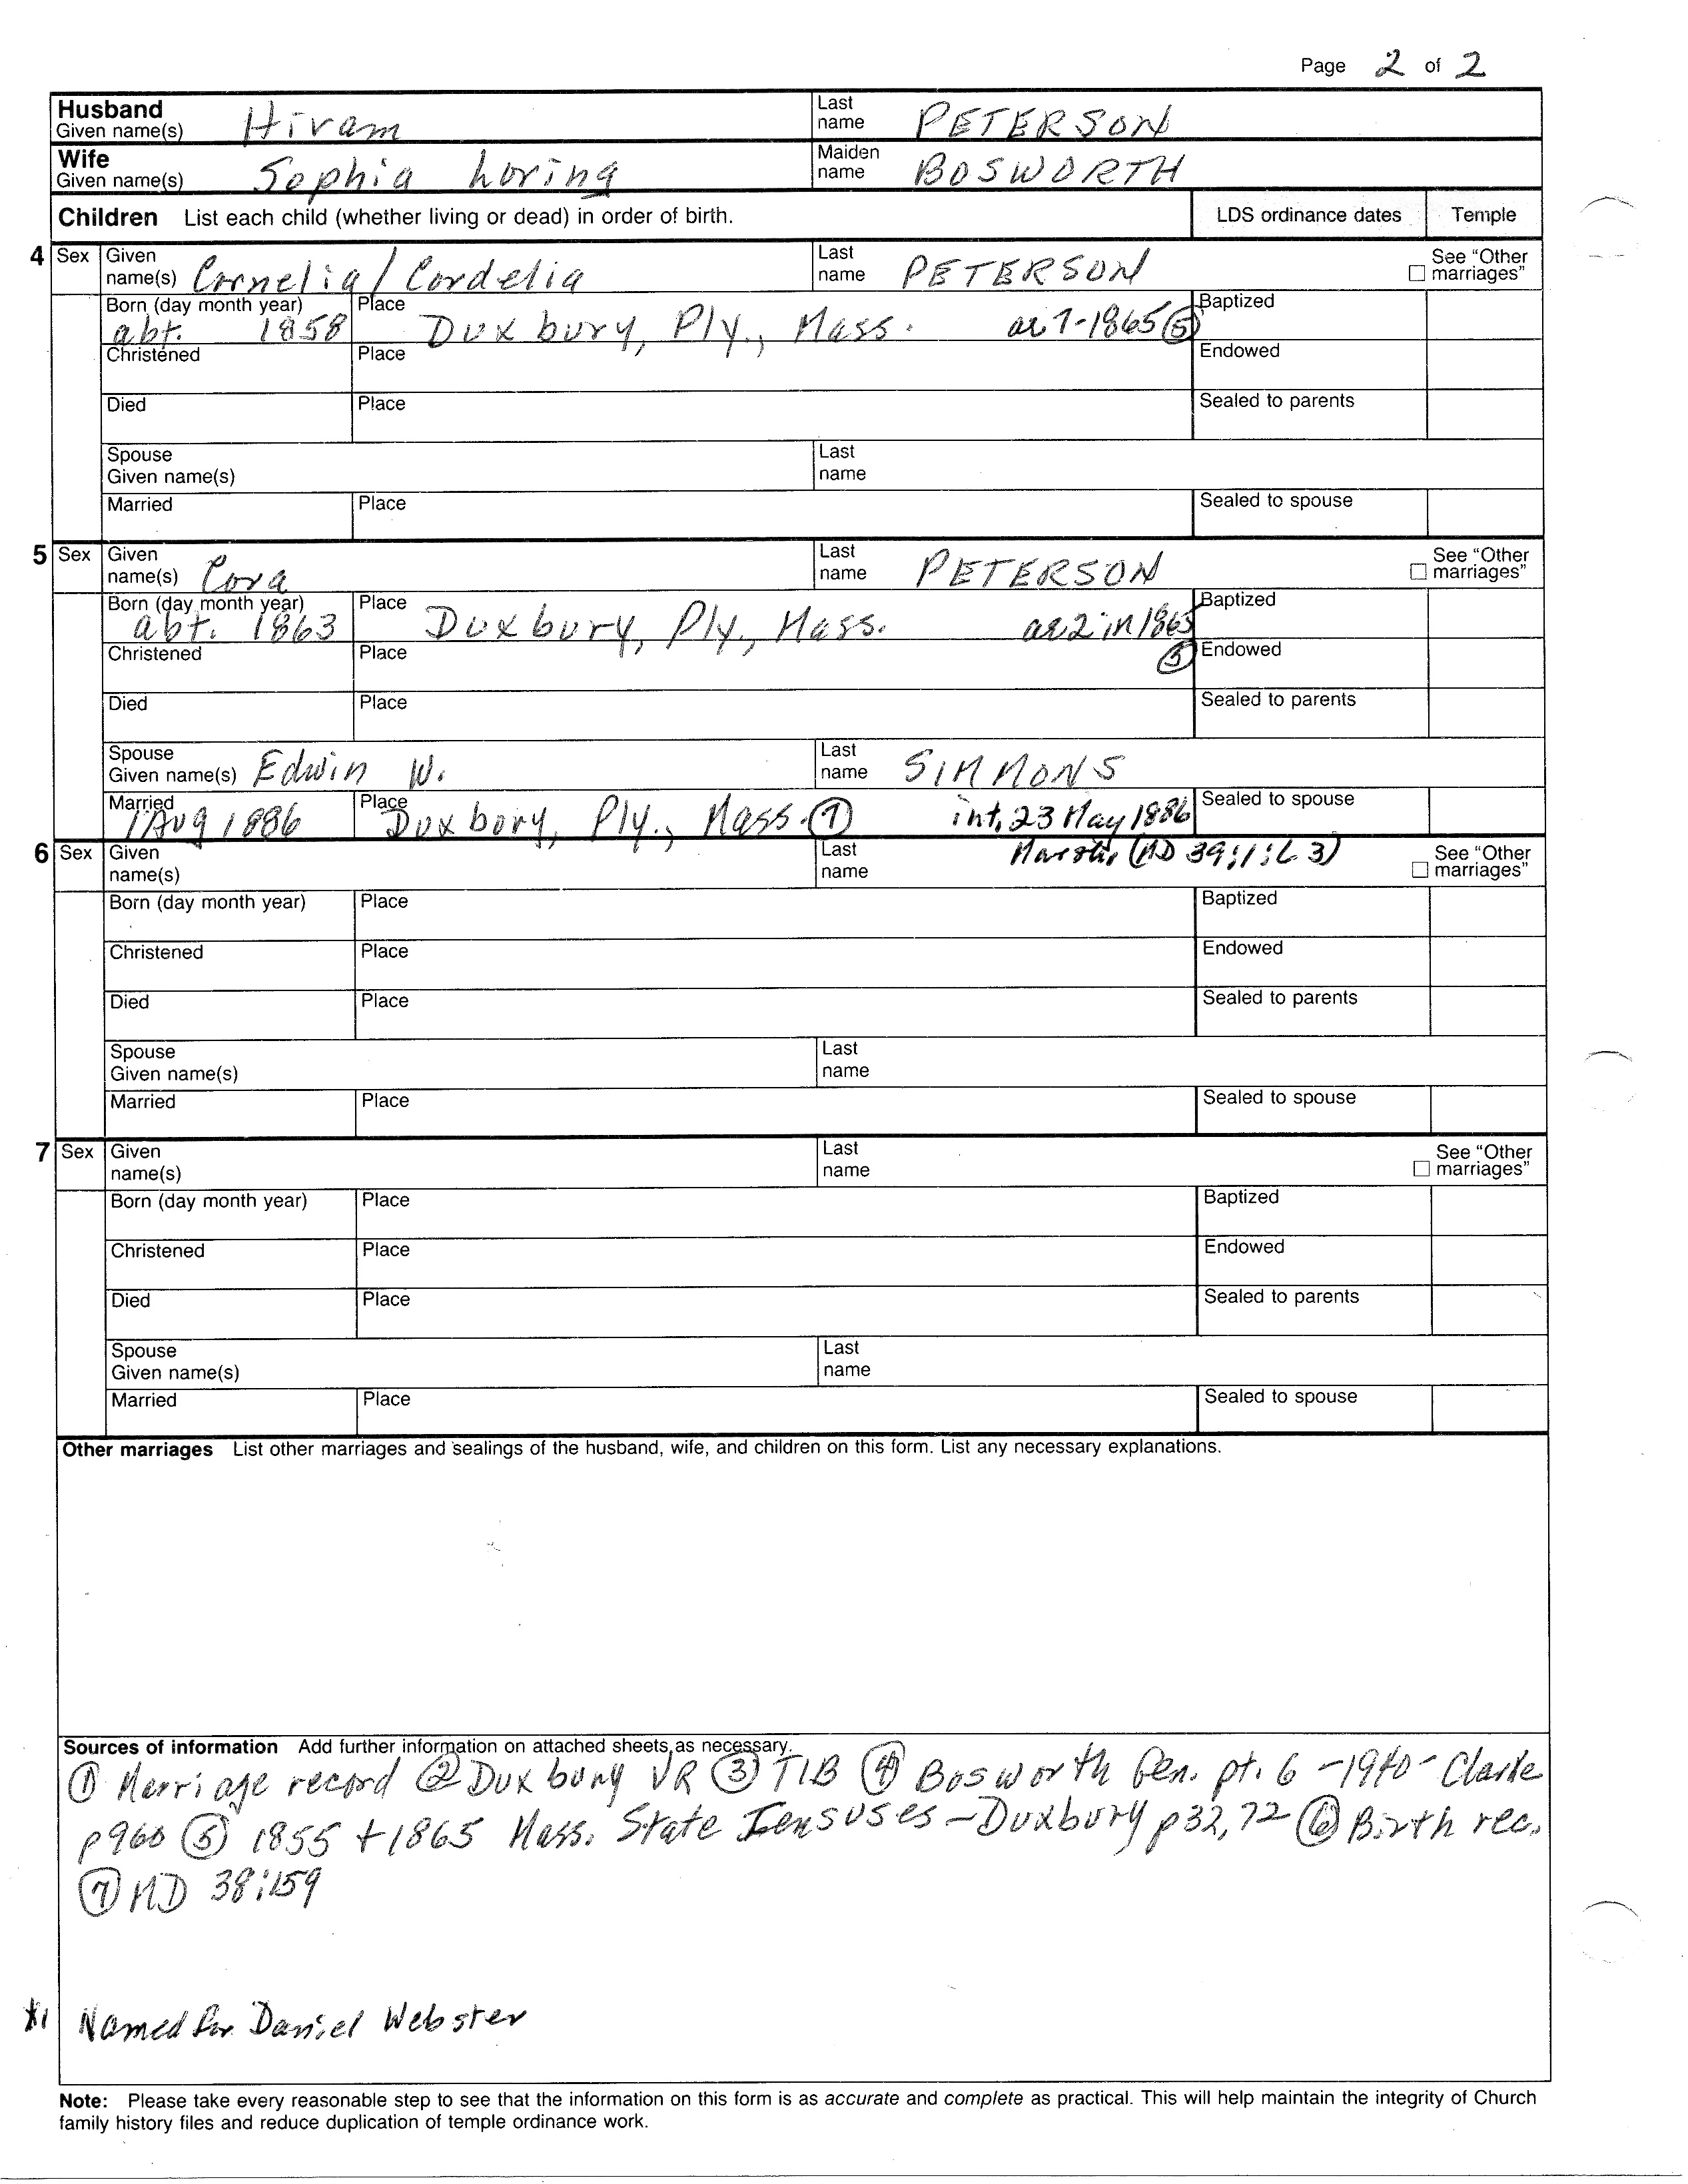 Page 2 of 2
Husband Given name(s) Hiram Last name PETERSON
Wife Given name(s) Sophia Loring Maiden name BOSWORTH
Children List each child (whether living or dead) in order of birth. LDS ordinance dates Temple
4 Sex Given name(s) Cornelia / Cordelia Last name PETERSON See “Other marriages”
Born (day month year) abt. 1858 Place Duxbury, Ply., Mass. ae 7-1865 ⑤ Baptized
Christened Place Endowed
Died Place Sealed to parents
Spouse Given name(s) Last name
Married Place Sealed to spouse
5 Sex Given name(s) Cora Last name PETERSON See “Other marriages”
Born (day month year) abt. 1863 Place Duxbury, Ply., Mass. ae 2 in 1865 Baptized
Christened Place ⑤ Endowed
Died Place Sealed to parents
Spouse Given name(s) Edwin W. Last name SIMMONS
Married 1 Aug 1886 Place Duxbury, Ply., Mass. ⑦ int. 23 May 1886 Sealed to spouse
6 Sex Given name(s) Last name (MD 39:1:L 3) See “Other marriages”
Born (day month year) Place Baptized
Christened Place Endowed
Died Place Sealed to parents
Spouse Given name(s) Last name
Married Place Sealed to spouse
7 Sex Given name(s) Last name See “Other marriages”
Born (day month year) Place Baptized
Christened Place Endowed
Died Place Sealed to parents
Spouse Given name(s) Last name
Married Place Sealed to spouse
Other marriages List other marriages and sealings of the husband, wife, and children on this form. List any necessary explanations.
Sources of information Add further information on attached sheets as necessary.
① Marriage record ② Duxbury VR ③ TIB ④ Bosworth Gen. pt. 6 - 1940 - Clarke
p 960 ⑤ 1855 + 1865 Mass. State Censuses - Duxbury p 32, 72 ⑥ Birth rec.
⑦ MD 38:159
*1 Named for Daniel Webster
Note: Please take every reasonable step to see that the information on this form is as accurate and complete as practical. This will help maintain the integrity of Church
family history files and reduce duplication of temple ordinance work.